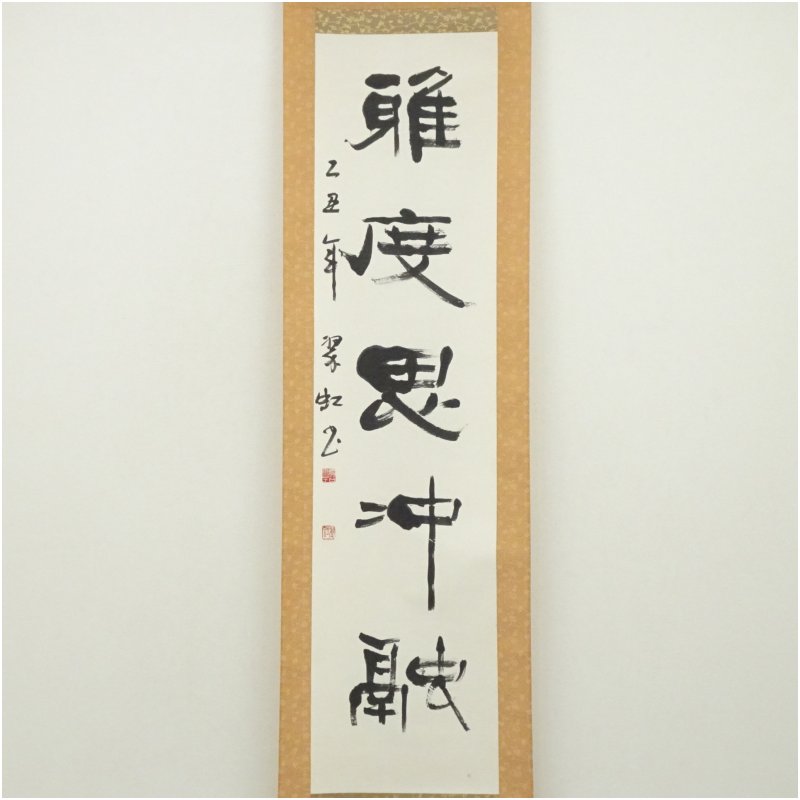 雅度思沖融
乙丑年 翠虹书